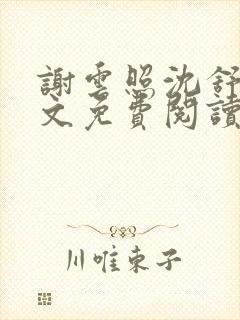 謝雲照沈舒
文免費閱讀
川唯東子